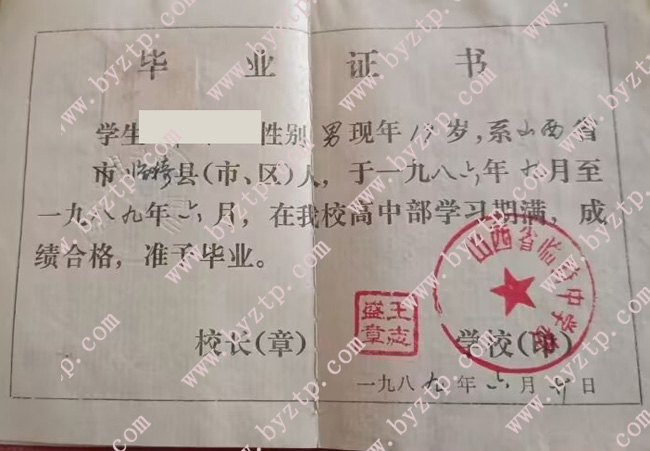 毕业证书
学生 性别 男 现年 19 岁，系 山西 省
市 临猗 县（市、区）人，于一九八六年 九 月至
一九八九年 六 月，在我校高中部学习期满，成
绩合格，准予毕业。
校长（章） 学校（印）
王志盛章
山西省临 中学校
一九八九年 六 月 日
www.byztp.com